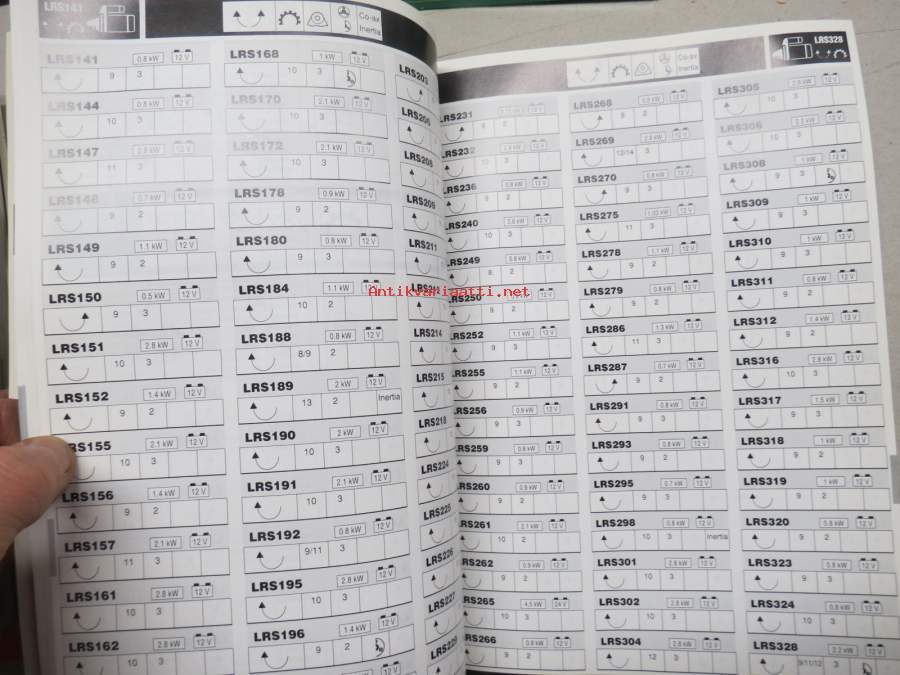 LRS141
Co-ax
Inertia
LRS141 0.8 kW 12 V
9 3
LRS144 0.8 kW 12 V
10 3
LRS147 2.8 kW 12 V
11 3
LRS148 0.7 kW 12 V
9 2
LRS149 1.1 kW 12 V
9 2
LRS150 0.5 kW 12 V
9 3
LRS151 2.8 kW 12 V
10 3
LRS152 1.4 kW 12 V
9 2
LRS155 2.1 kW 12 V
10 3
LRS156 1.4 kW 12 V
9 2
LRS157 2.1 kW 12 V
11 3
LRS161 2.8 kW 12 V
10 3
LRS162 2.8 kW 12 V
10 3
LRS168 1 kW 12 V
10 3
LRS170 2.1 kW 12 V
10 3
LRS172 2.1 kW 12 V
10 3
LRS178 0.9 kW 12 V
9 2
LRS180 0.8 kW 12 V
9 3
LRS184 1.1 kW 12 V
10 2
LRS188 0.8 kW 12 V
8/9 2
LRS189 2 kW 12 V
13 2 Inertia
LRS190 2 kW 12 V
10 3
LRS191 2.1 kW 12 V
10 3
LRS192 0.8 kW 12 V
9/11 3
LRS195 2.8 kW 12 V
10 3
LRS196 1.4 kW 12 V
9 2
LRS203
LRS206
LRS208
LRS209
LRS211
LRS214
LRS215
LRS218
LRS224
LRS225
LRS226
LRS227
LRS229
Co-ax
Inertia
LRS328
LRS231
LRS232
LRS236 12 V
9 2
LRS240 12 V
10 3
LRS249 12 V
8 2
LRS250 12 V
9 2
LRS252 1.1 kW 12 V
9 3
LRS255 1.1 kW 12 V
9 2
LRS256 0.9 kW 12 V
9 2
LRS259 12 V
9 3
LRS260 0.9 kW 12 V
9 2
LRS261 2.1 kW 12 V
10 3
LRS262 0.9 kW 12 V
9 2
LRS265 4.5 kW 24 V
10 3
LRS266 0.8 kW 12 V
9 2
LRS268 12 V
9 3
LRS269 12 V
12/14 3
LRS270 0.8 kW 12 V
9 3
LRS275 12 V
11 3
LRS278 1.1 kW 12 V
9 2
LRS279 0.8 kW 12 V
9 2
LRS286 1.3 kW 12 V
11 3
LRS287 0.7 kW 12 V
9 2
LRS291 0.8 kW 12 V
9 2
LRS293 0.8 kW 12 V
9 2
LRS295 0.7 kW 12 V
9 3
LRS298 12 V
10 3 Inertia
LRS301 2.8 kW 12 V
10 3
LRS302 2.8 kW 12 V
10 3
LRS304 2.8 kW 12 V
12 3
LRS305 12 V
10 3
LRS306 2.2 kW 12 V
10 3
LRS308 1 kW 12 V
9 3
LRS309 1 kW 12 V
9 3
LRS310 1 kW 12 V
9 3
LRS311 0.8 kW 12 V
9 2
LRS312 1.4 kW 12 V
9 2
LRS316 2.8 kW 12 V
10 3
LRS317 1.5 kW 12 V
9 3
LRS318 1 kW 12 V
9 2
LRS319 1 kW 12 V
9 2
LRS320 0.8 kW 12 V
9 2
LRS323 0.9 kW 12 V
9 3
LRS324 0.8 kW 12 V
10 3
LRS328 2.2 kW 12 V
9/11/12 3
Antikvariaatti.net